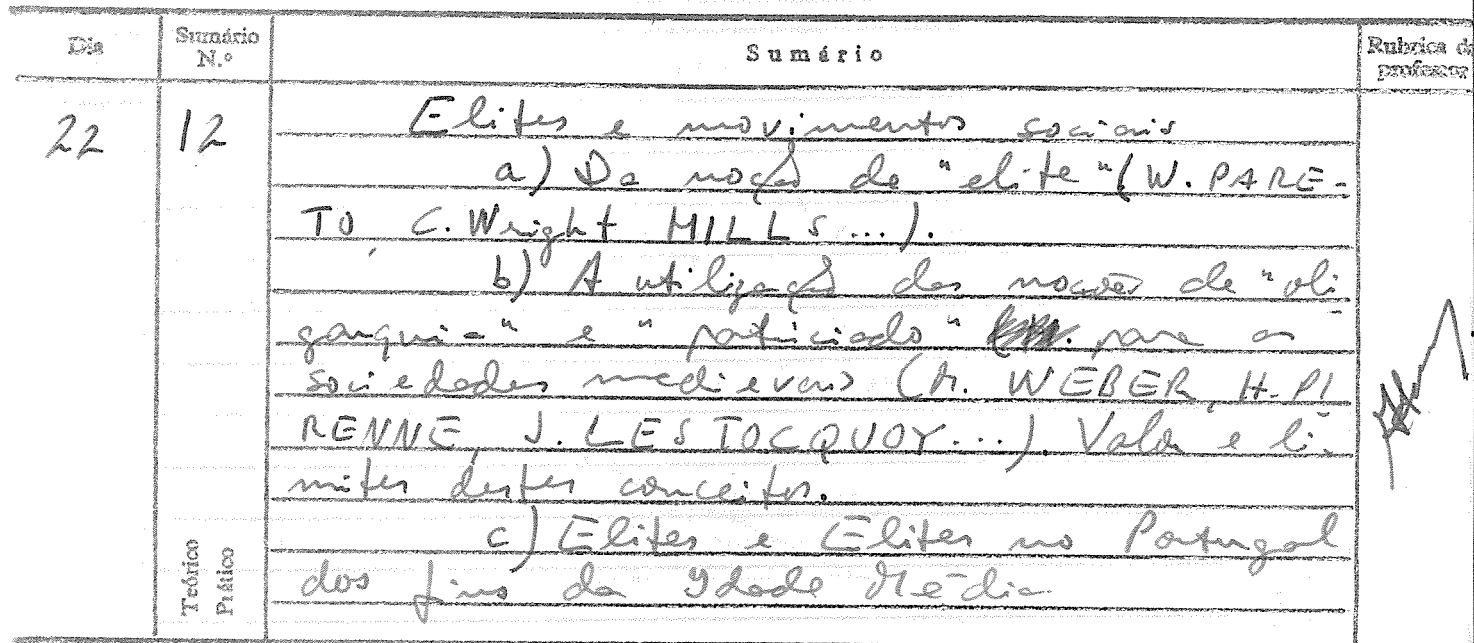 Dia
Sumário N.º
Sumário
Rubrica do professor
22
12
Elites e movimentos sociais
a) Da noção de "elite" (W. PARE-
TO, C. Wright MILLS ...).
b) A utilização das noções de "oli-
garquia" e "patriciado" para as
sociedades medievais (M. WEBER, H. PI
RENNE, J. LESTOCQUOY...). Valor e li-
mites destes conceitos.
c) Elites e Elites no Portugal
dos fins da Idade Média
Teórico
Prático